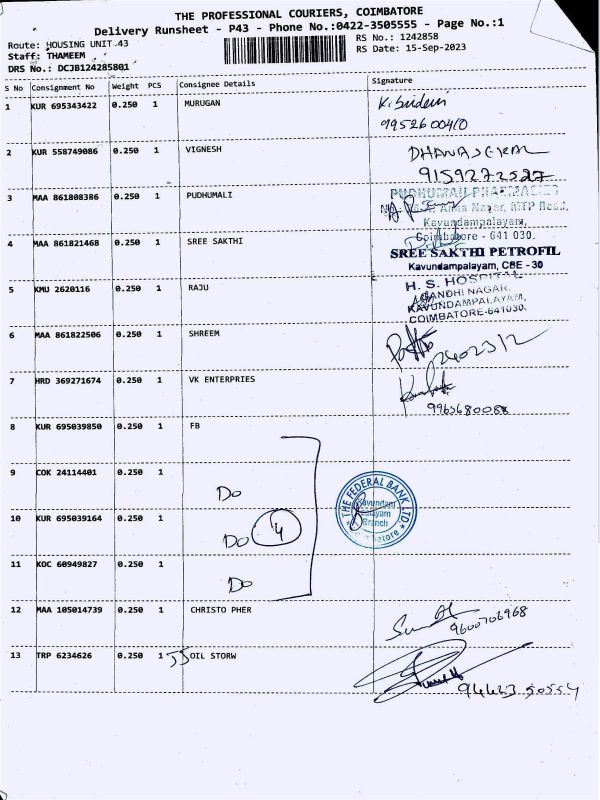 THE PROFESSIONAL COURIERS, COIMBATORE
Delivery Runsheet - P43 - Phone No.:0422-3505555 - Page No.:1
Route: HOUSING UNIT.43
RS No.: 1242858
Staff: THAMEEM
RS Date: 15-Sep-2023
DRS No.: DCJB124285801
S No Consignment No Weight PCS Consignee Details Signature
1 KUR 695343422 0.250 1 MURUGAN
2 KUR 558749086 0.250 1 VIGNESH DHANASEKAR
9159272527
3 MAA 861808386 0.250 1 PUDHUMALI PUDHUMALI PHARMACIES
Anna Nagar, MTP Road,
Kavundampalayam,
Coimbatore - 641 030.
4 MAA 861821468 0.250 1 SREE SAKTHI
SREE SAKTHI PETROFIL
Kavundampalayam, CBE - 30
5 KMU 2620116 0.250 1 RAJU H. S. HOSPITAL
GANDHI NAGAR,
KAVUNDAMPALAYAM,
COIMBATORE-641030.
6 MAA 861822506 0.250 1 SHREEM
7 HRD 369271674 0.250 1 VK ENTERPRIES
8 KUR 695039850 0.250 1 FB
9 COK 24114401 0.250 1 Do
10 KUR 695039164 0.250 1 Do 4
THE FEDERAL BANK LTD
Kavundam
palayam
Branch
11 KOC 60949827 0.250 1 Do
12 MAA 105014739 0.250 1 CHRISTO PHER
9600706968
13 TRP 6234626 0.250 1 JJ OIL STORW
9442350554